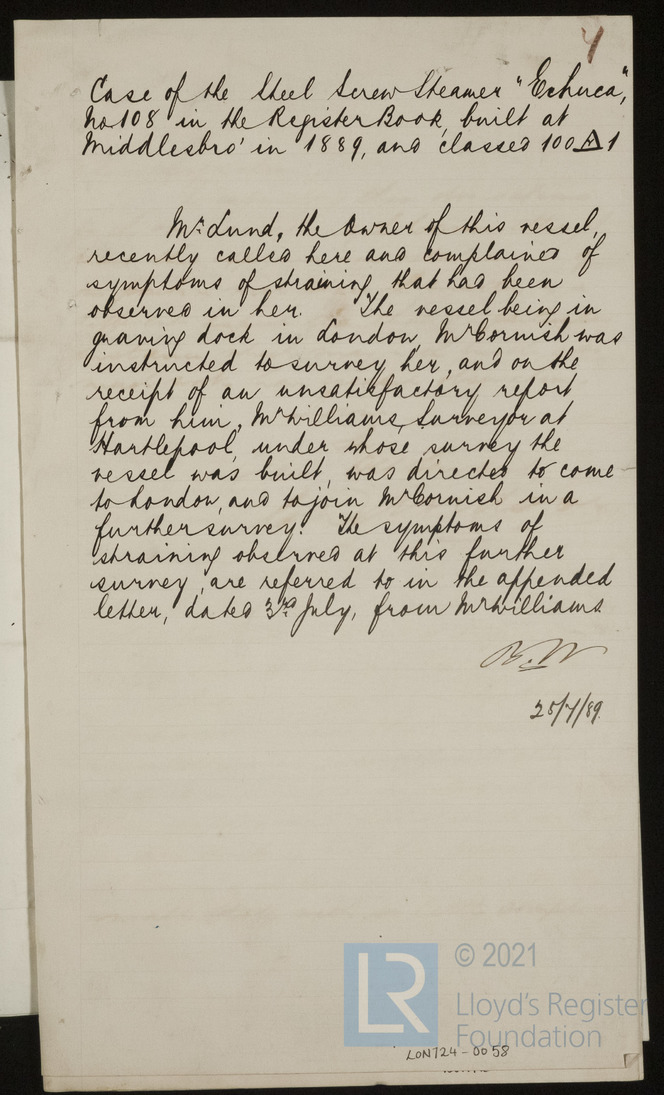 4
Case of the Steel Screw Steamer "Echuca",
No 108 in the Register Book, built at
Middlesbro' in 1889, and classed 100 A 1
Mr Lund, the Owner of this vessel,
recently called here and complained of
symptoms of straining, that had been
observed in her. The vessel being in
graving dock in London, Mr Cornish was
instructed to survey her, and on the
receipt of an unsatisfactory report
from him, Mr Williams, Surveyor at
Hartlepool, under whose survey the
vessel was built, was directed to come
to London, and to join Mr Cornish in a
further survey. The symptoms of
straining observed at this further
survey, are referred to in the appended
letter, dated 3rd July, from Mr Williams
25/7/89.
LR
© 2021
Lloyd's Register
Foundation
LON724-0058